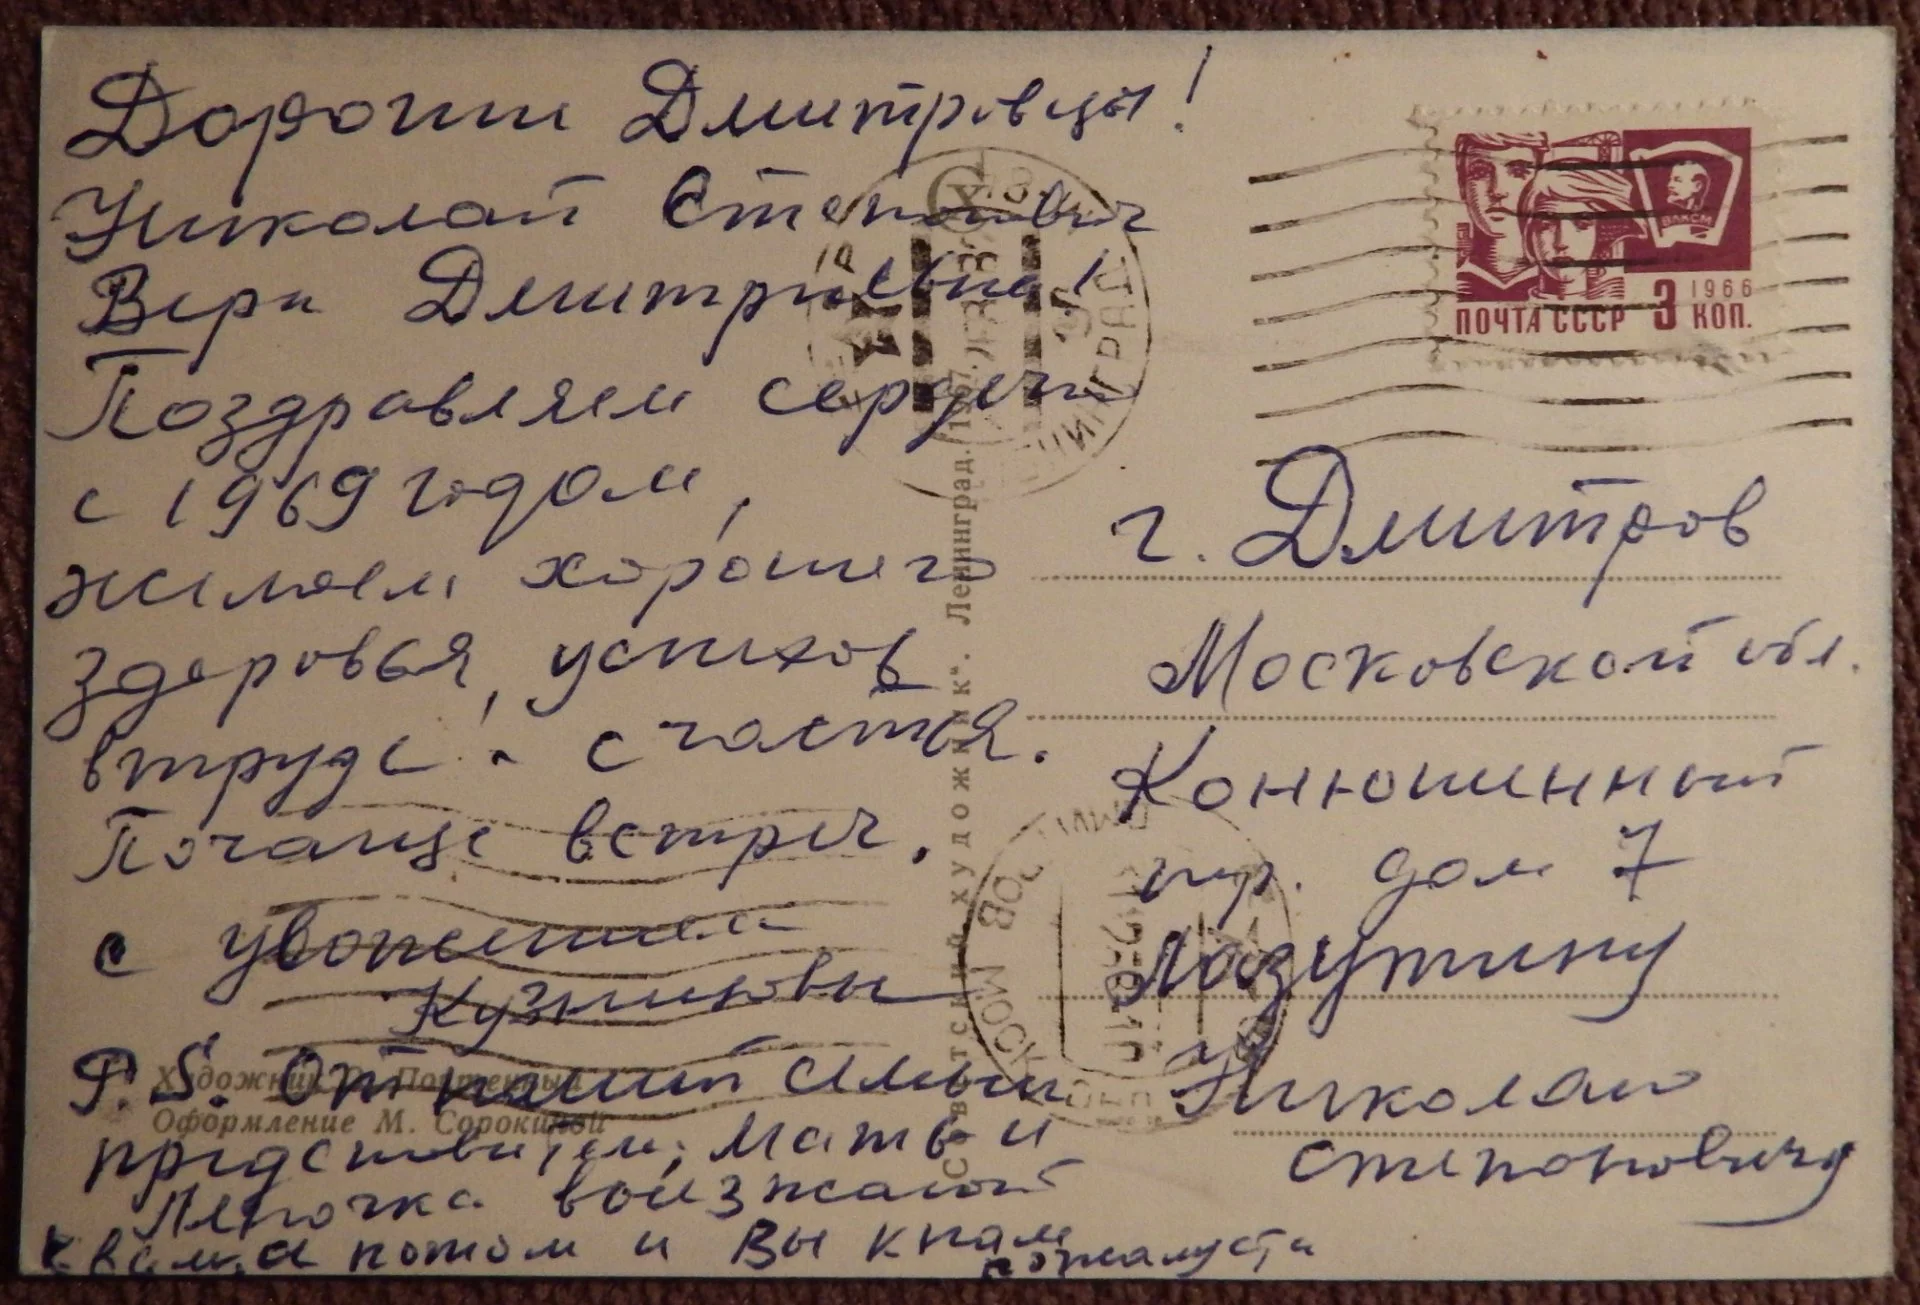 Дорогие Дмитровцы!
Николай Степанович
Вера Дмитриевна!
Поздравляем сердечно
с 1969 годом,
желаем хорошего
здоровья, успехов
в труде и счастья.
Почаще встреч.
с уважением
Кузнецовы
P.S. От нашей семьи
представители, мать и
Леночка выезжают
к вам, а потом и Вы к нам
пожалуста
Художник
Оформление М. Сорокиной
Советский художник". Ленинград. 1967.
ПОЧТА СССР 3 КОП.
1966
ВЛКСМ
г. Дмитров
Московской обл.
Конюшинный
пр. дом 7
Лазутину
Николаю
Степановичу